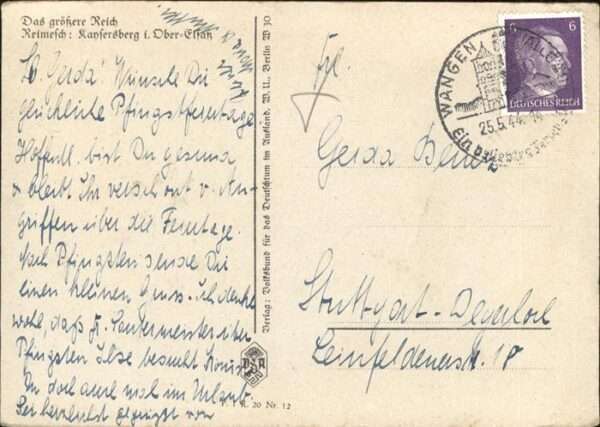 Das größere Reich
Reimesch: Kaysersberg i. Ober-Elsaß
Lb. Gerda! Wünsche Dir
glückliche Pfingstfeiertage
Hoffentl. bist Du gesund
u. bleibt Ihr verschont v. An-
griffen über die Feiertage.
Nach Pfingsten sende Dir
einen kleinen Gruss. Ich denke
wohl, dass Fr. über
Pfingsten Ilse besucht
Du doch auch mal im Urlaub.
Sei herzlichst gegrüsst von
Verlag: Volksbund für das Deutschtum im Ausland, W.U., Berlin W 30
VDA
R. 20 Nr. 12
Frl.
Gerda Benz
Stuttgart-Degerloch
Leinfeldenerstr. 18
WANGEN
25.5.44
6
6
DEUTSCHES REICH